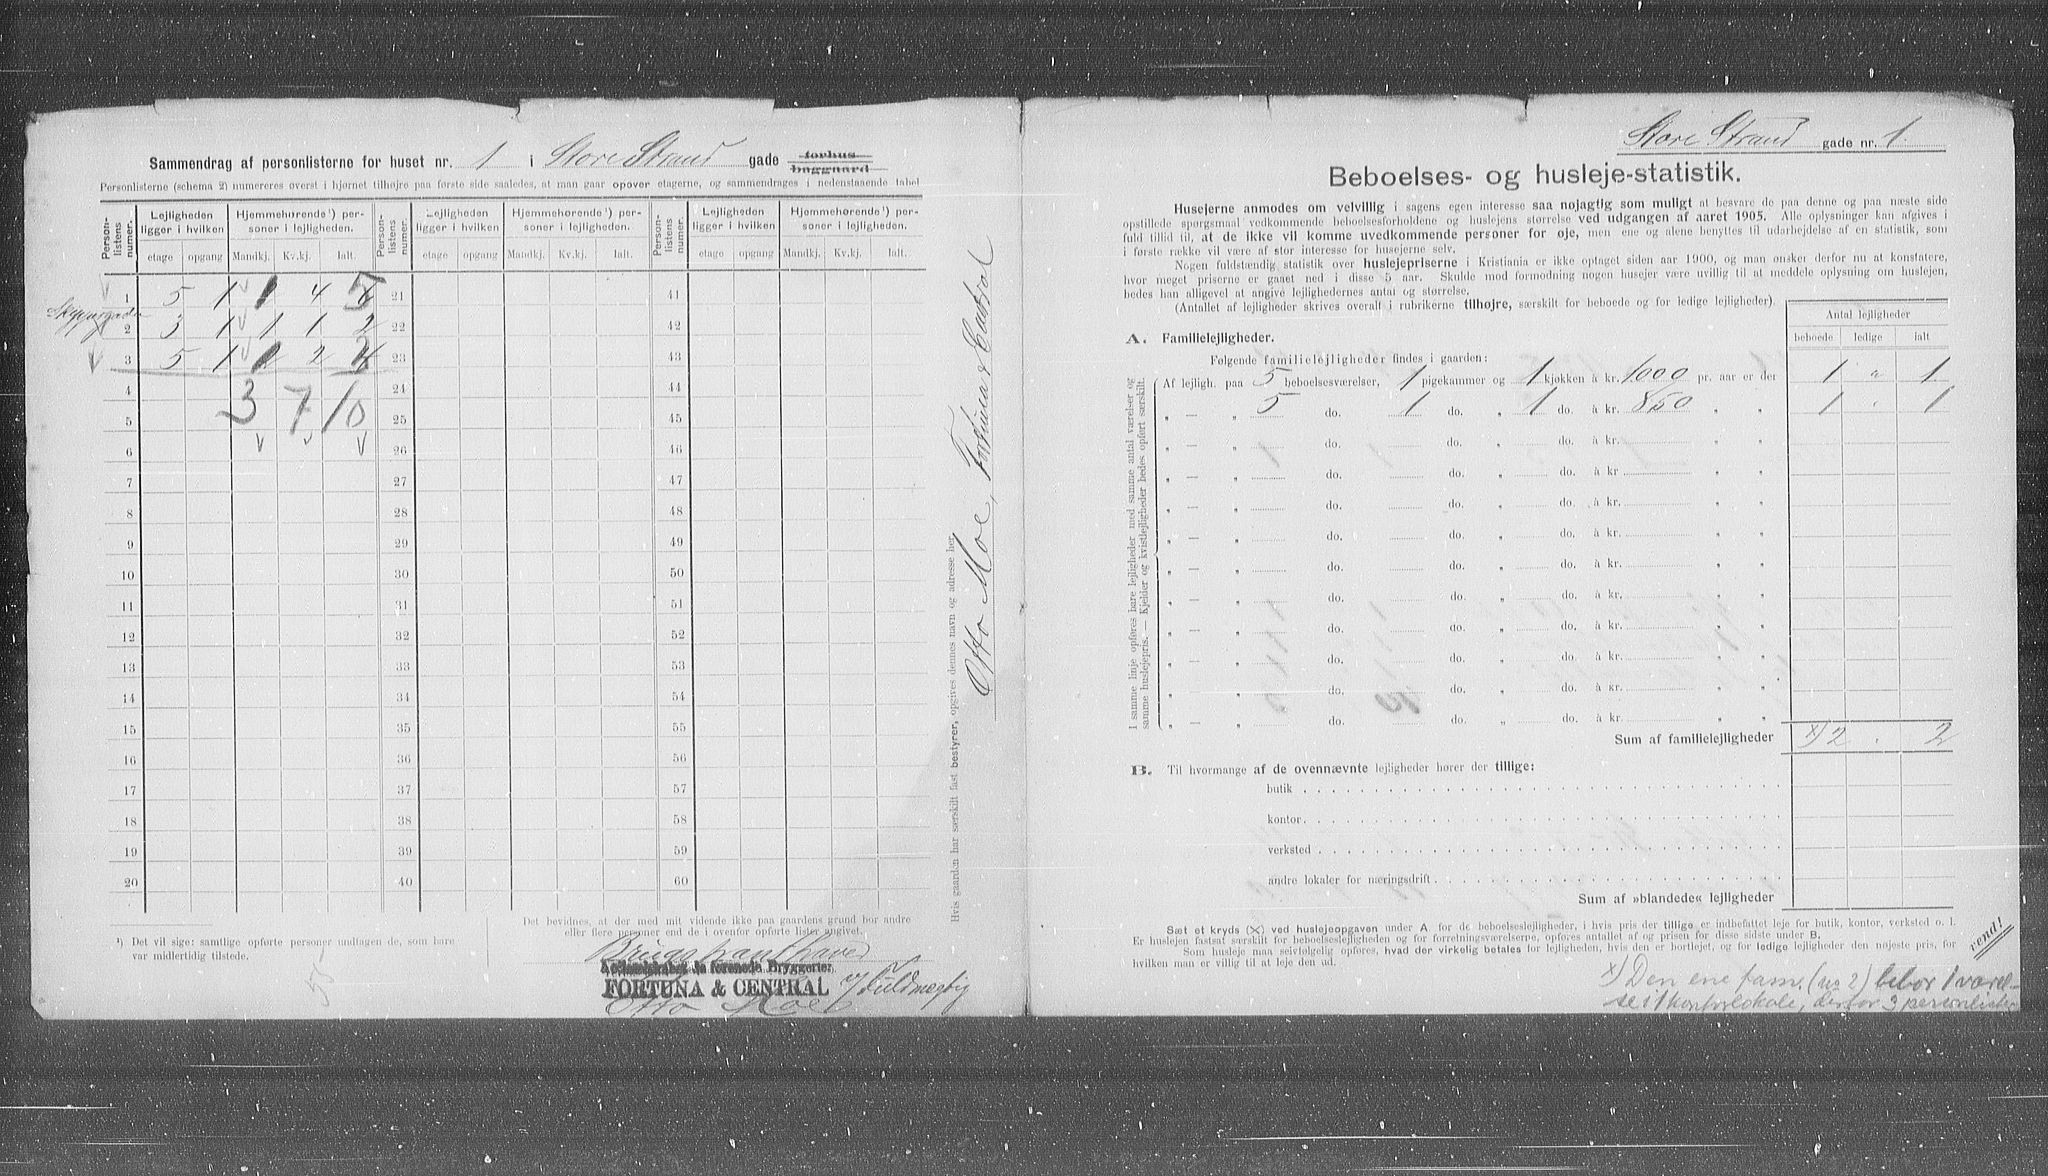 Sammendrag af personlisterne for huset nr. 1 i Store Strand gade forhus baggaard
Personlisterne (schema 2) numereres øverst i hjørnet tilhøjre paa første side saaledes, at man gaar opover etagerne, og sammendrages i nedenstaaende tabel
Personlistens numer. Lejligheden ligger i hvilken Hjemmehørende¹) personer i lejligheden. Personlistens numer. Lejligheden ligger i hvilken Hjemmehørende¹) personer i lejligheden. Personlistens numer. Lejligheden ligger i hvilken Hjemmehørende¹) personer i lejligheden.
etage opgang Mandkj. Kv.kj. Ialt. etage opgang Mandkj. Kv.kj. Ialt. etage opgang Mandkj. Kv.kj. Ialt.
1 5 1 1 4 5 21 41
Skippergaden
2 3 1 1 1 2 22 42
3 5 1 1 2 3 23 43
4 3 7 10 24 44
5 25 45
6 26 46
7 27 47
8 28 48
9 29 49
10 30 50
11 31 51
12 32 52
13 33 53
14 34 54
15 35 55
16 36 56
17 37 57
18 38 58
19 39 59
20 40 60
¹) Det vil sige: samtlige opførte personer undtagen de, som bare
var midlertidig tilstede.
Det bevidnes, at der med mit vidende ikke paa gaardens grund bor andre
eller flere personer end de i ovenfor opførte lister angivet.
Aktieselskabet de forenede Bryggerier
FORTUNA & CENTRAL
Otto Moe
Fuldmægtig
Hvis gaarden har særskilt fast bestyrer, opgives dennes navn og adresse her
Otto Moe, Fortuna & Central
Store Strand gade nr. 1
Beboelses- og husleje-statistik.
Husejerne anmodes om velvillig i sagens egen interesse saa nøjagtig som muligt at besvare de paa denne og paa næste side
opstillede spørgsmaal vedkommende beboelsesforholdene og huslejens størrelse ved udgangen af aaret 1905. Alle oplysninger kan afgives i
fuld tillid til, at de ikke vil komme uvedkommende personer for øje, men ene og alene benyttes til udarbejdelse af en statistik, som
i første række vil være af stor interesse for husejerne selv.
Nogen fuldstændig statistik over huslejepriserne i Kristiania er ikke optaget siden aar 1900, og man ønsker derfor nu at konstatere,
hvor meget priserne er gaaet ned i disse 5 aar. Skulde mod formodning nogen husejer være uvillig til at meddele oplysning om huslejen,
bedes han alligevel at angive lejlighedernes antal og størrelse.
(Antallet af lejligheder skrives overalt i rubrikerne tilhøjre, særskilt for beboede og for ledige lejligheder).
Antal lejligheder
beboede ledige ialt
A. Familielejligheder.
Følgende familielejligheder findes i gaarden:
Af lejligh. paa 5 beboelsesværelser, 1 pigekammer og 1 kjøkken à kr. 1000 pr. aar er der 1 " 1
„ — „ 5 do. 1 do. „ 1 do. à kr. 850 „ „ 1 " 1
„ — „ do. do. „ do. à kr. „ „
„ — „ do. do. „ do. à kr. „ „
„ — „ do. do. „ do. à kr. „ „
„ — „ do. do. „ do. à kr. „ „
„ — „ do. do. „ do. à kr. „ „
„ — „ do. do. „ do. à kr. „ „
„ — „ do. do. „ do. à kr. „ „
„ — „ do. do. „ do. à kr. „ „
„ — „ do. do. „ do. à kr. „ „
„ — „ do. do. „ do. à kr. „ „
I samme linje opføres bare lejligheder med samme antal værelser og
samme huslejepris. — Kjelder og kvistlejligheder bedes opført særskilt.
Sum af familielejligheder x) 2 . 2
B. Til hvormange af de ovennævnte lejligheder hører der tillige:
butik
kontor
verksted
andre lokaler for næringsdrift
Sum af »blandede« lejligheder
Sæt et kryds (X) ved huslejeopgaven under A for de beboelseslejligheder, i hvis pris der tillige er indbefattet leje for butik, kontor, verksted o. l.
Er huslejen fastsat særskilt for beboelseslejligheden og for forretningsværelserne, opføres antallet af og prisen for disse sidste under B.
Som husleje maa selvfølgelig opføres, hvad der virkelig betales for lejligheden, hvis den er bortlejet, og for ledige lejligheder den nøjeste pris, for
hvilken man er villig til at leje den ud.
vend!
x) Den ene fam. (no 2) bebor 1 værel-
se i 1 kontorlokale, derfor 3 personlister